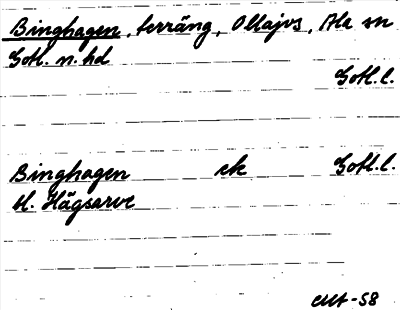 Binghagen, terräng, Ollajvs, Ala sn
Gotl. n. hd
Gotl. l.
Binghagen ek Gotl. l.
st. Hägsarve